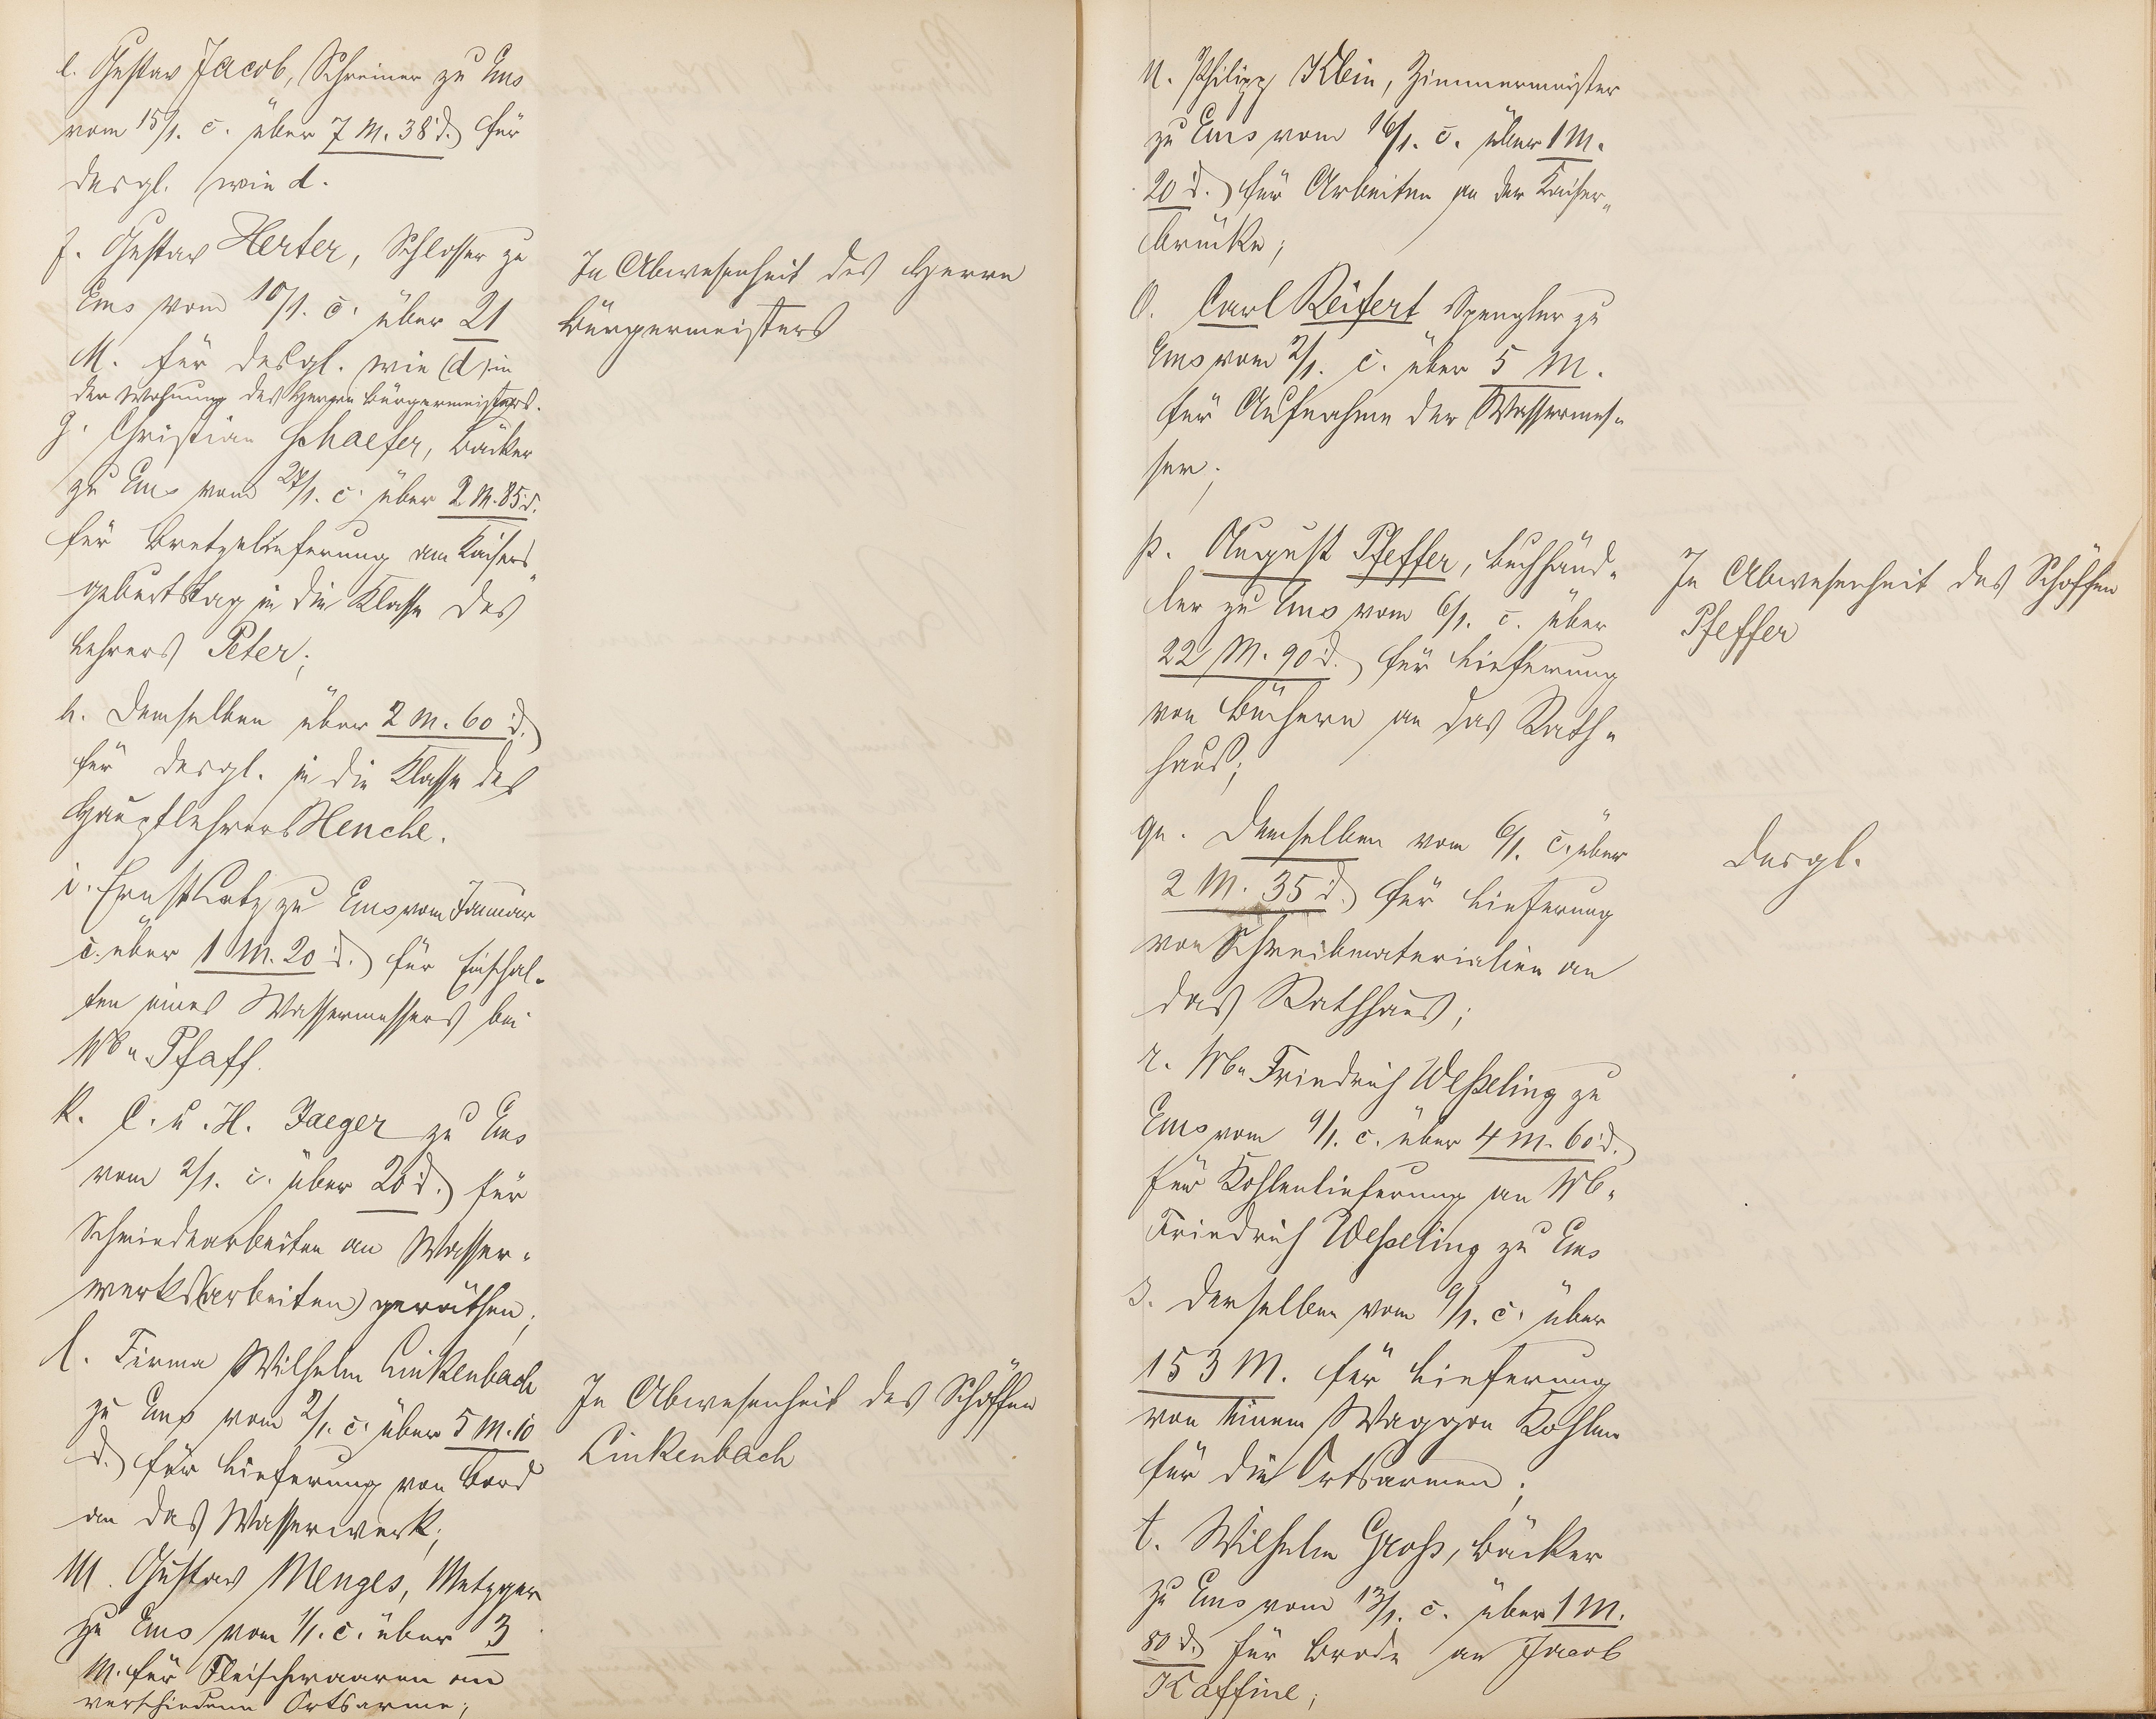 e. Gustav Jacob, Schreiner zu Ems
vom 15/1. c. über 7 M. 38 d. für
desgl. wie d.
f. Gustav Herter, Schlosser zu
Ems vom 10/1. c. über 21
M. für desgl. wie (d) in
der Wohnung des Herrn Bürgermeisters.
In Abwesenheit des Herrn
Bürgermeisters
g. Christian Schaefer, Bäcker
zu Ems vom 27/1. c. über 2 M. 85 d.
für Bretzellieferung am Kaisers„
geburtstag in die Klasse des
Lehrers Peter;
h. Demselben über 2 M. 60 d.
für desgl. in die Klasse des
Hauptlehrers Henche.
i. Ernst Lotz zu Ems vom Januar
c. über 1 M. 20 d. für Einschal„
ten eines Wassermessers bei
Wb. Pfaff.
k. C. u. H. Jaeger zu Ems
vom 2/1. c. über 20 d. für
Schmiedearbeiten an Wasser„
werks(arbeiten) geräthen;
l. Firma Wilhelm Linkenbach
zu Ems vom 2/1. c. über 5 M. 10
d. für Lieferung von Bord
an das Wasserwerk;
In Abwesenheit des Schöffen
Linkenbach
M. Gustav Menges, Metzger
zu Ems vom 1/1. c. über 3
M. für Fleischwaaren an
verschiedene Ortsarme;
N. Philipp Klein, Zimmermeister
zu Ems vom 16/1. c. über 1 M.
20 d. für Arbeiten an der Kaiser„
brücke;
O. Carl Reifert Spengler zu
Ems vom 2/1. c. über 5 M.
für Aufnahme der Wassermes„
ser;
p. August Pfeffer, Buchhänd„
ler zu Ems vom 6/1. c. über
22 M. 90 d. für Lieferung
von Büchern an das Rath„
haus;
In Abwesenheit des Schöffen
Pfeffer
qu. Demselben vom 6/1. c. über
2 M. 35 d. für Lieferung
von Schreibmaterialien an
das Rathhaus;
desgl.
r. Wb. Friedrich Weßeling zu
Ems vom 9/1. c. über 4 M. 60 d.
für Kohlenlieferung an Wb.
Friedrich Weßeling zu Ems
s. Derselben vom 9/1. c. über
153 M. für Lieferung
von einem Waggon Kohlen
für die Ortsarmen;
t. Wilhelm Groß, Bäcker
zu Ems vom 13/1. c. über 1 M.
80 d. für Brode an Jacob
Kaffine;